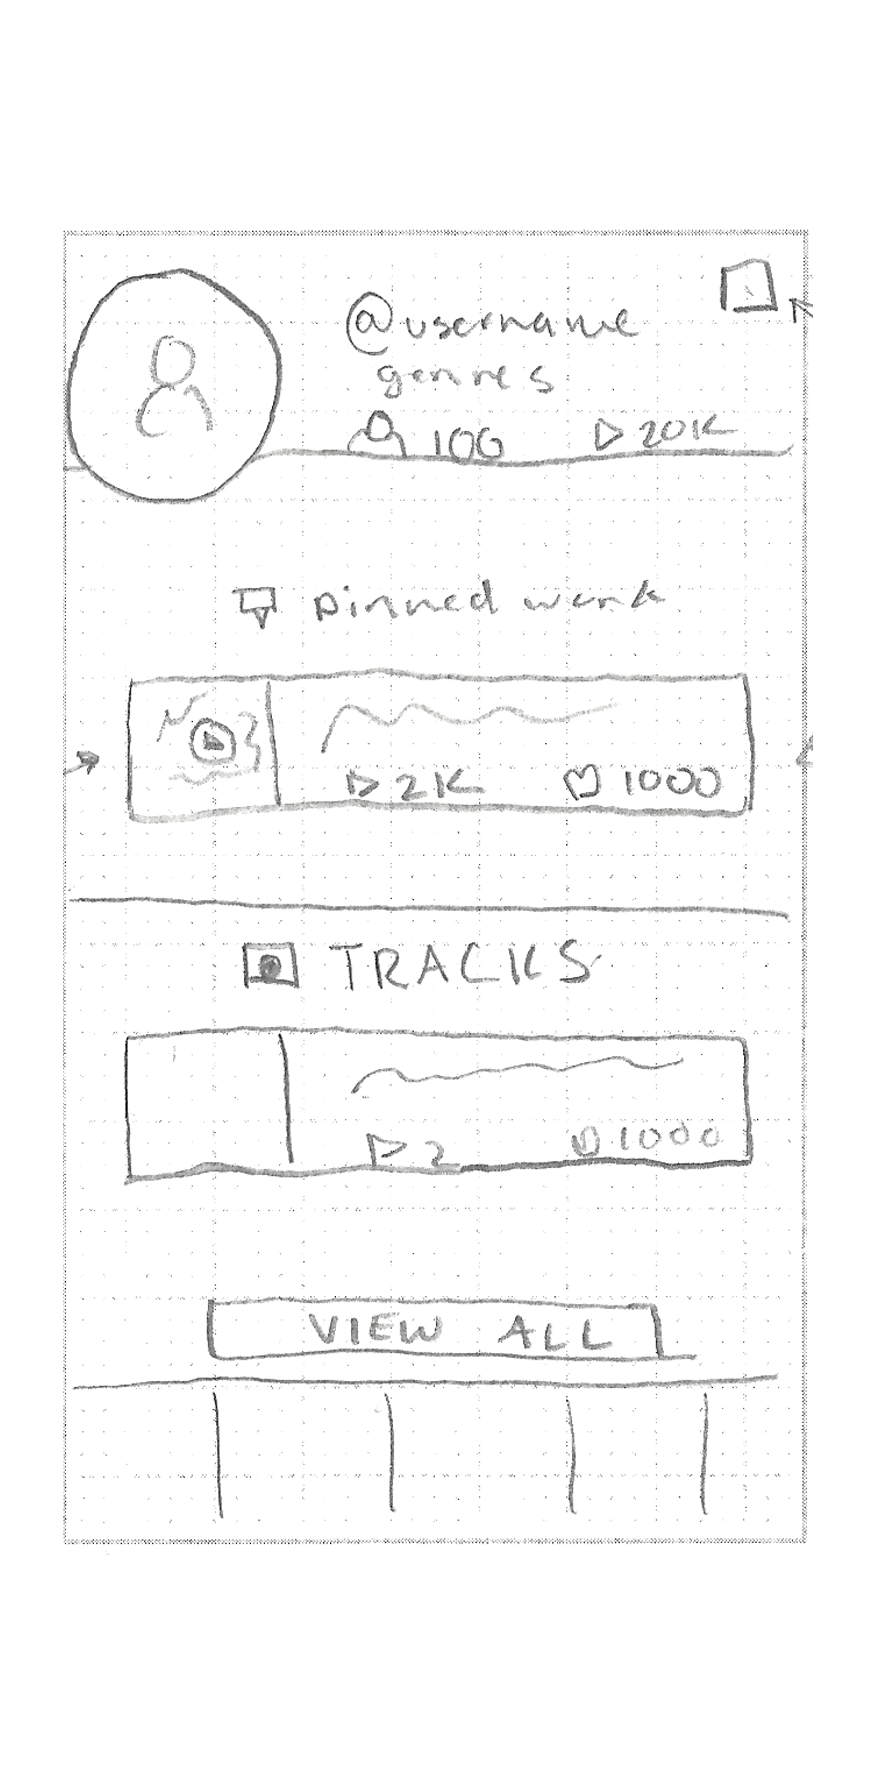 @username
genres
100 20K
pinned work
2K 1000
TRACKS
2 1000
VIEW ALL